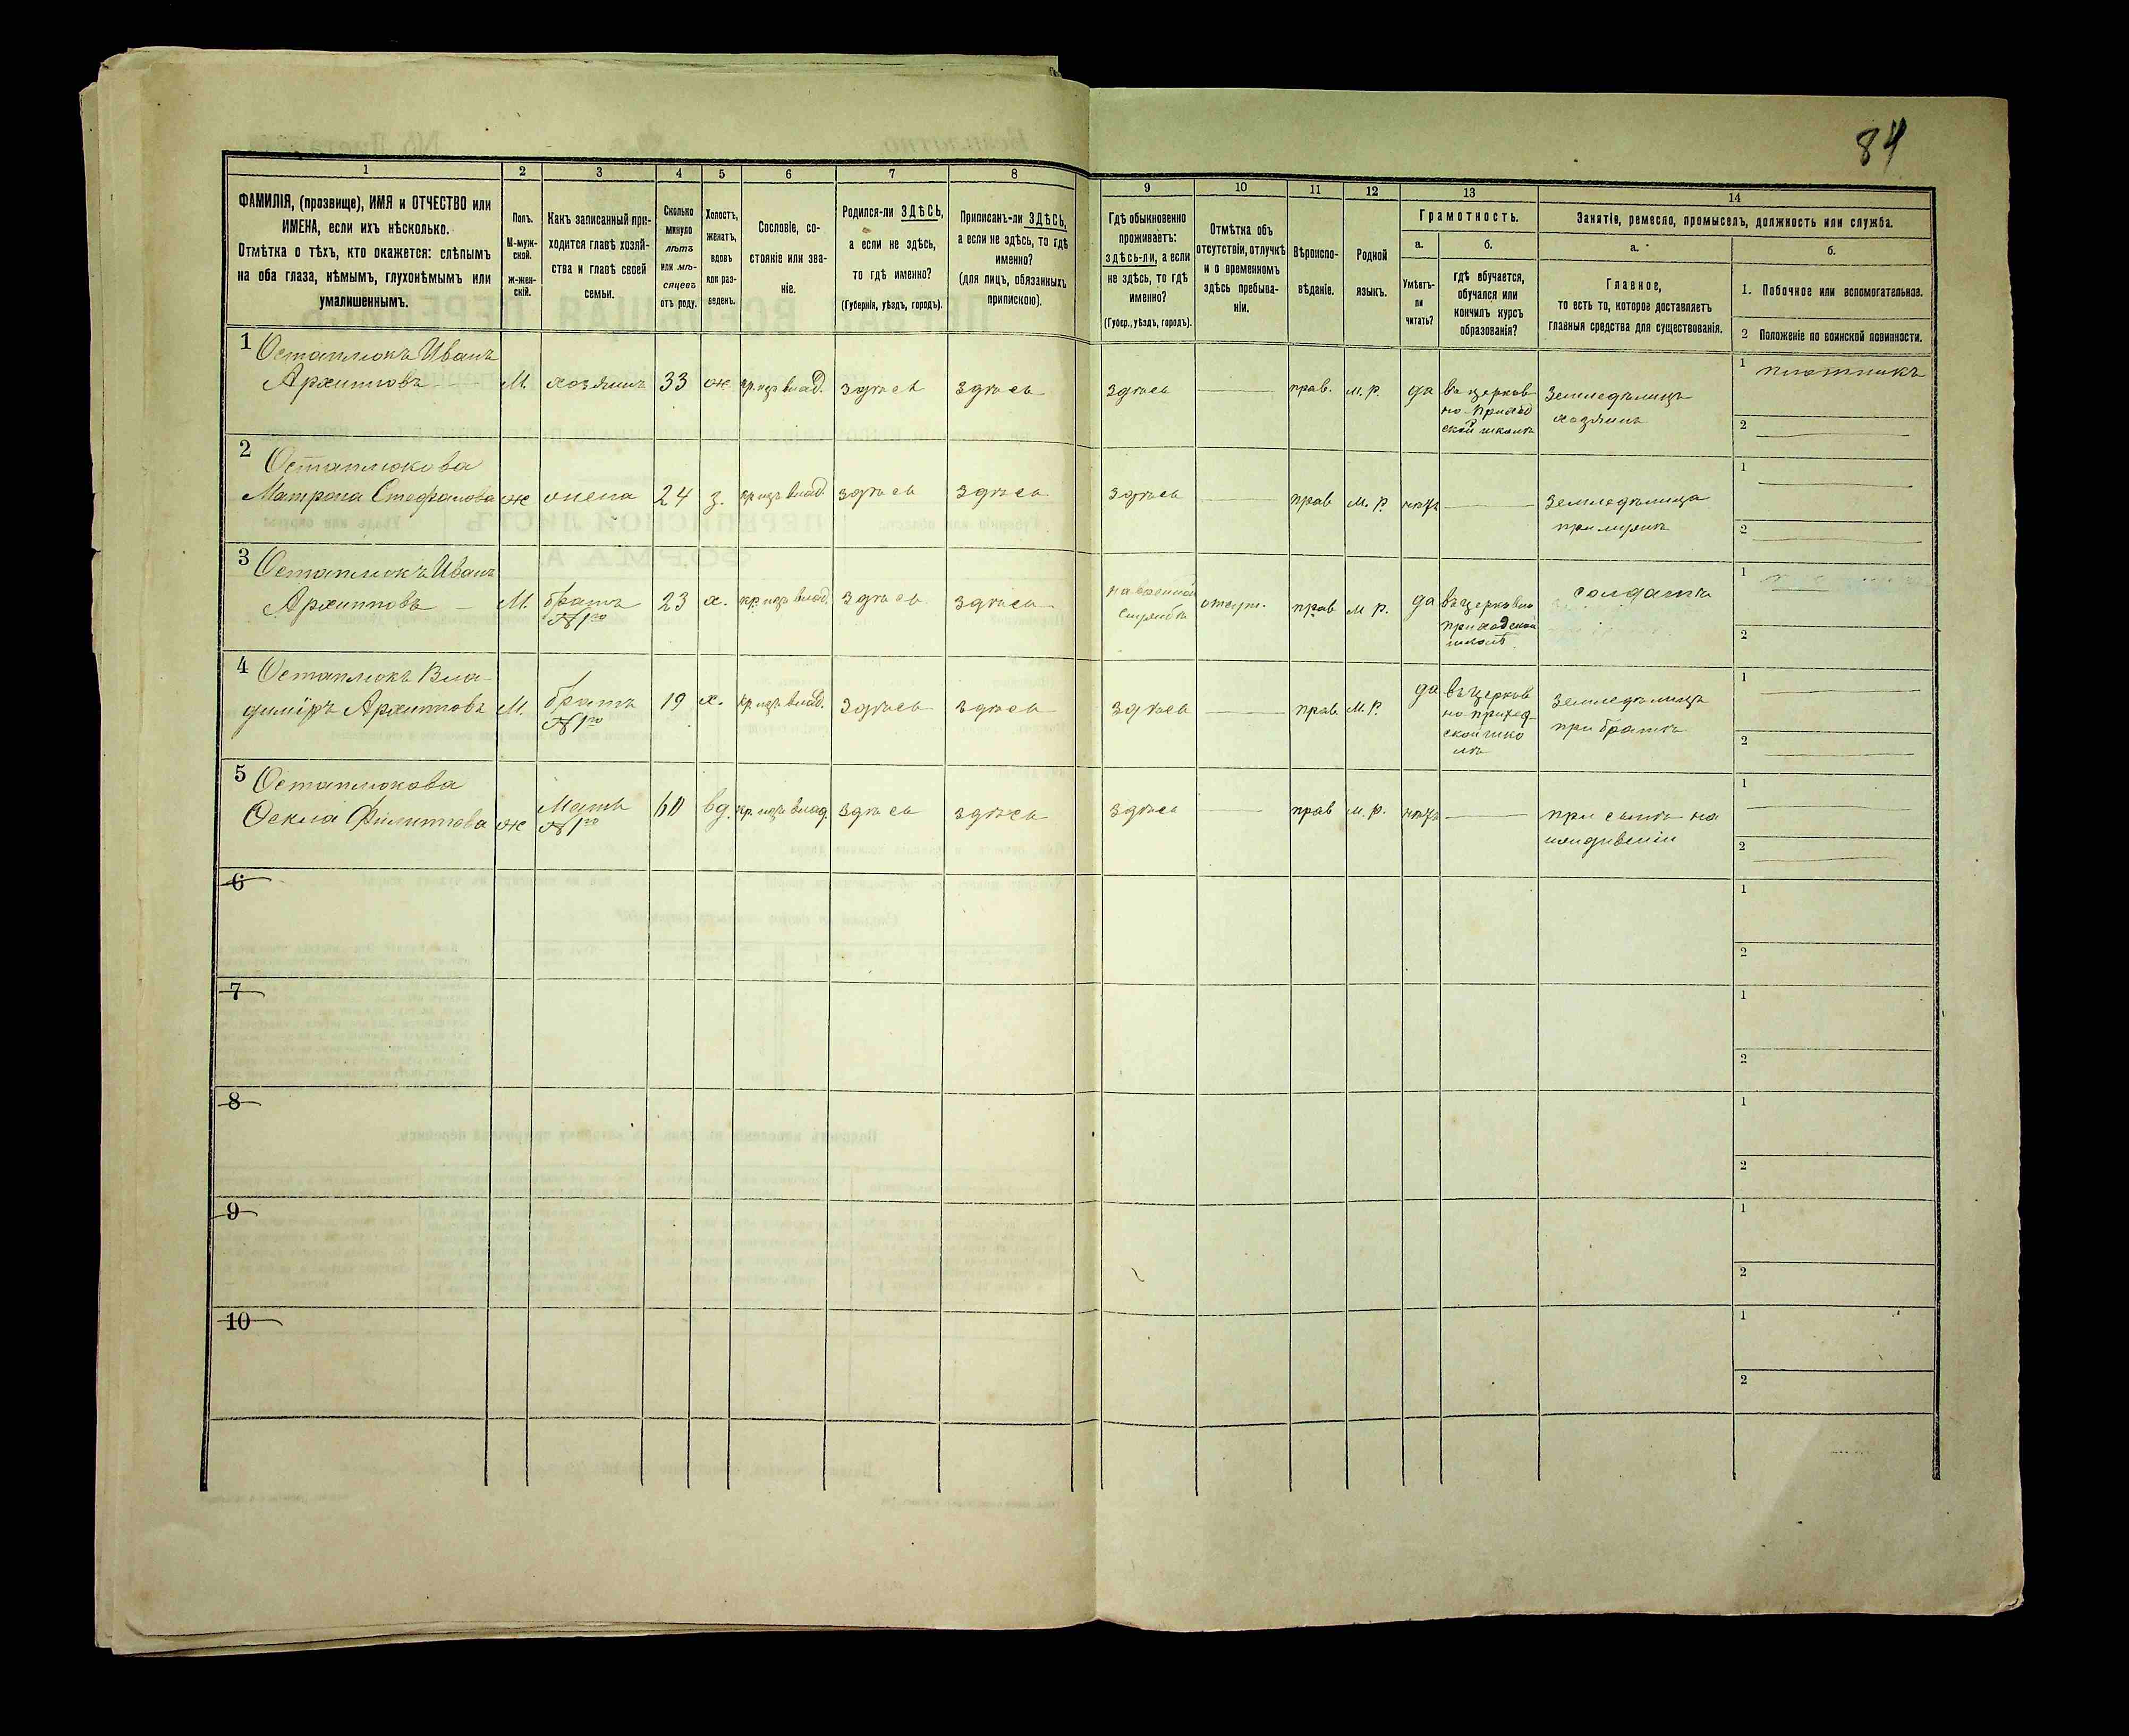 84
1
2
3
4
5
6
7
8
9
10
11
12
13
14
ФАМИЛІЯ, (прозвище), ИМЯ и ОТЧЕСТВО или
ИМЕНА, если ихъ нѣсколько.
Отмѣтка о тѣхъ, кто окажется: слѣпымъ
на оба глаза, нѣмымъ, глухонѣмымъ или
умалишеннымъ.
Полъ.
М-муж-
ской.
ж-жен-
скій.
Какъ записанный при-
ходится главѣ хозяй-
ства и главѣ своей
семьи.
Сколько
минуло
лѣтъ
или мѣ-
сяцевъ
отъ роду.
Холостъ,
женатъ,
вдовъ
или раз-
веденъ.
Сословіе, со-
стояніе или зва-
ніе.
Родился-ли ЗДѢСЬ,
а если не здѣсь,
то гдѣ именно?
(Губернія, уѣздъ, городъ).
Приписанъ-ли ЗДѢСЬ,
а если не здѣсь, то гдѣ
именно?
(для лицъ, обязанныхъ
припискою).
Гдѣ обыкновенно
проживаетъ:
здѣсь-ли, а если
не здѣсь, то гдѣ
именно?
(Губер., уѣздъ, городъ).
Отмѣтка объ
отсутствіи, отлучкѣ
и о временномъ
здѣсь пребыва-
ніи.
Вѣроиспо-
вѣданіе.
Родной
языкъ.
Грамотность.
а.
Умѣетъ-
ли
читать?
б.
гдѣ обучается,
обучался или
кончилъ курсъ
образованія?
Занятіе, ремесло, промыселъ, должность или служба.
а.
Главное,
то есть то, которое доставляетъ
главныя средства для существованія.
б.
1. Побочное или вспомогательное.
2 Положеніе по воинской повинности.
1 Остапмюкъ Иванъ
Архиповъ
М. хозяинъ 33 ж кр. изъ влад. здѣсь здѣсь здѣсь прав. м. р. да въ церков
но-приход
ской школѣ
Земледѣлецъ
хозяинъ
1 плотникъ
2
2 Остапмюкова
Матрона Стефанова ж жена 24 з. кр изъ влад. здѣсь здѣсь здѣсь прав м. р. нѣтъ
земледѣлица
при мужѣ
1
2
3 Остапмюкъ Иванъ
Архиповъ М. братъ
№ 1го
23 х. кр. изъ влад. здѣсь здѣсь
на военной
службѣ
отсут. прав м р. да въ церковно
приходской
школѣ
солдатъ
1
2
4 Остапмюкъ Вла-
димiръ Архиповъ М. братъ
№ 1го
19 х. кр изъ влад. здѣсь здѣсь здѣсь прав. м. р. да въ церков
но-приход-
ской шко
лѣ
земледѣлецъ
при братѣ
1
2
5 Остапмюкова
Фекла Филиппова ж Мать
№ 1го
60 вд. кр. изъ влад. здѣсь здѣсь здѣсь прав м. р. нѣтъ
при сынѣ на
иждивеніи
1
2
6
1
2
7
1
2
8
1
2
9
1
2
10
1
2